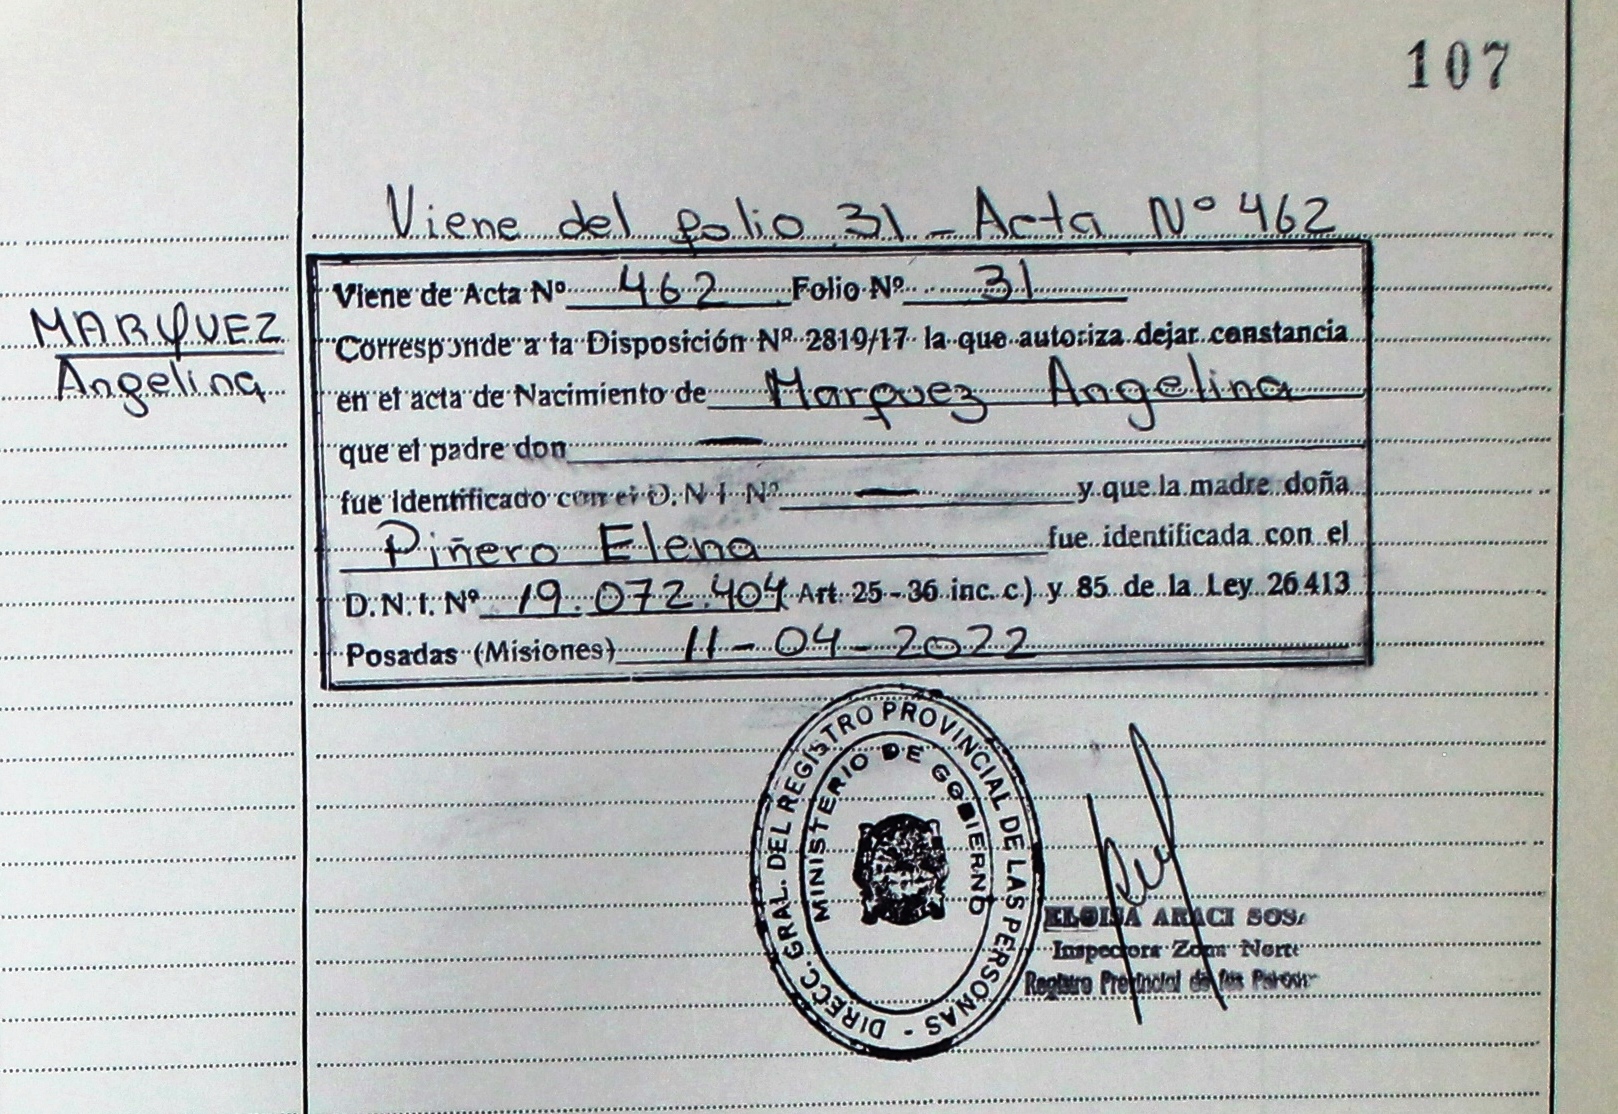 107
Viene del folio 31 - Acta Nº 462
MARQUEZ
Angelina
Viene de Acta Nº 462 Folio Nº 31
Corresponde a la Disposición Nº 2819/17 la que autoriza dejar constancia
en el acta de Nacimiento de Marquez Angelina
que el padre don —
fue identificado con el D.N.I. Nº — y que la madre doña
Piñero Elena fue identificada con el
D.N.I. Nº 19.072.404 Art. 25-36 inc. c) y 85 de la Ley 26413
Posadas (Misiones) 11-04-2022
DIRECC. GRAL. DEL REGISTRO PROVINCIAL DE LAS PERSONAS -
MINISTERIO DE GOBIERNO
ELOISA ARACI SOSA
Inspectora Zona Norte
Registro Provincial de las Person